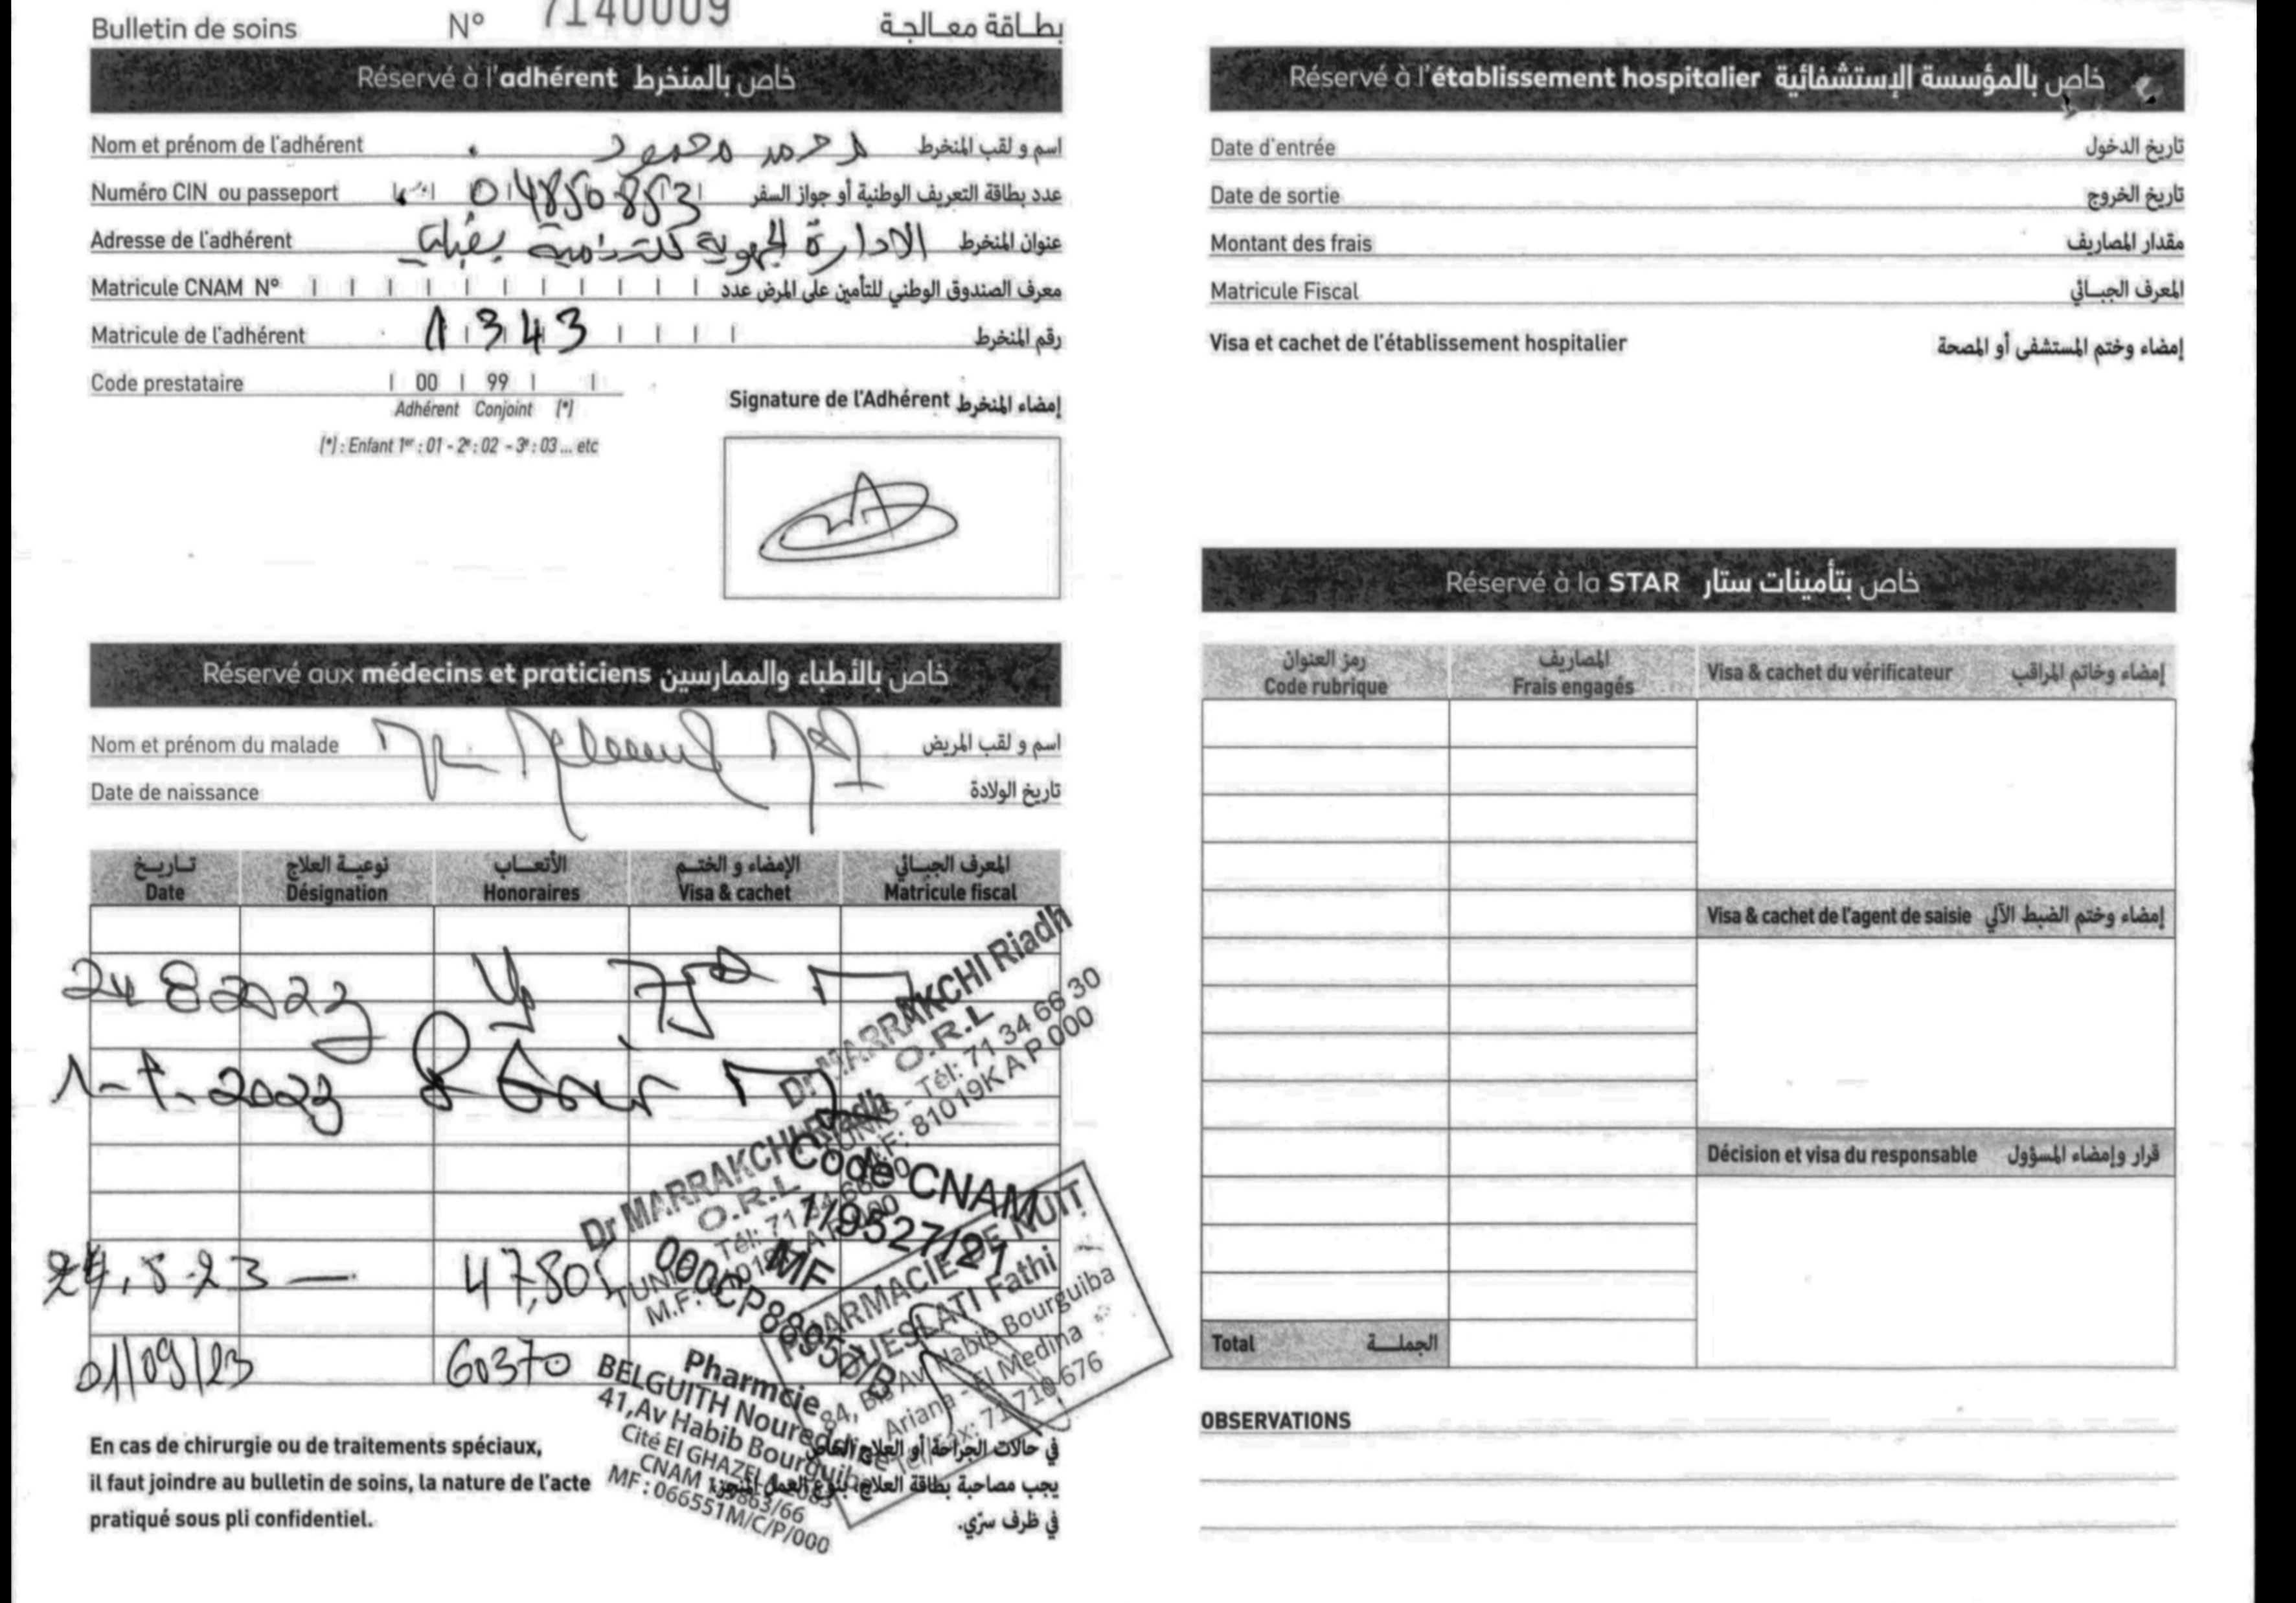 Bulletin de soins N° 7140009 بطاقة معالجة
Réservé à l'adhérent خاص بالمنخرط
Nom et prénom de l'adhérent محمد محمود اسم و لقب المنخرط
Numéro CIN ou passeport 04850853 عدد بطاقة التعريف الوطنية أو جواز السفر
Adresse de l'adhérent الادارة الجهوية للتنمية بقبلي عنوان المنخرط
Matricule CNAM N° معرف الصندوق الوطني للتأمين على المرض عدد
Matricule de l'adhérent 1343 رقم المنخرط
Code prestataire 00 99
Adhérent Conjoint (*)
(*) : Enfant 1er : 01 - 2e : 02 - 3e : 03 ... etc
Signature de l'Adhérent إمضاء المنخرط
Réservé aux médecins et praticiens خاص بالأطباء والممارسين
Nom et prénom du malade اسم و لقب المريض
Date de naissance تاريخ الولادة
تاريخ نوعية العلاج الأتعاب الإمضاء و الختم المعرف الجبائي
Date Désignation Honoraires Visa & cachet Matricule fiscal
24 8 2023
2023
24.8.23 — 47,805
01/09/23 60370
Dr MARRAKCHI Riadh
O.R.L
TUNIS - Tél: 71 34 66 30
M.F: 81019K A P 000
Dr MARRAKCHI Riadh
O.R.L
Code CNAM
1/9527/21
MF
PHARMACIE DE NUIT
OUESLATI Fathi
84, Bis Av. Habib Bourguiba
Ariana - El Medina
Tel/Fax: 71 710 676
Pharmcie
BELGUITH Noureddine
41,Av Habib Bourguiba
Cité El GHAZELA 2083
MF : 066551M/C/P/000
En cas de chirurgie ou de traitements spéciaux,
il faut joindre au bulletin de soins, la nature de l'acte
pratiqué sous pli confidentiel.
في حالات الجراحة أو العلاج الخاص
يجب مصاحبة بطاقة العلاج بنوع العمل المنجز
في ظرف سرّي.
Réservé à l'établissement hospitalier خاص بالمؤسسة الإستشفائية
Date d'entrée تاريخ الدخول
Date de sortie تاريخ الخروج
Montant des frais مقدار المصاريف
Matricule Fiscal المعرف الجبائي
Visa et cachet de l'établissement hospitalier إمضاء وختم المستشفى أو المصحة
Réservé à la STAR خاص بتأمينات ستار
رمز العنوان المصاريف
Code rubrique Frais engagés Visa & cachet du vérificateur إمضاء وخاتم المراقب
Visa & cachet de l'agent de saisie إمضاء وختم الضبط الآلي
Décision et visa du responsable قرار وإمضاء المسؤول
Total الجملة
OBSERVATIONS